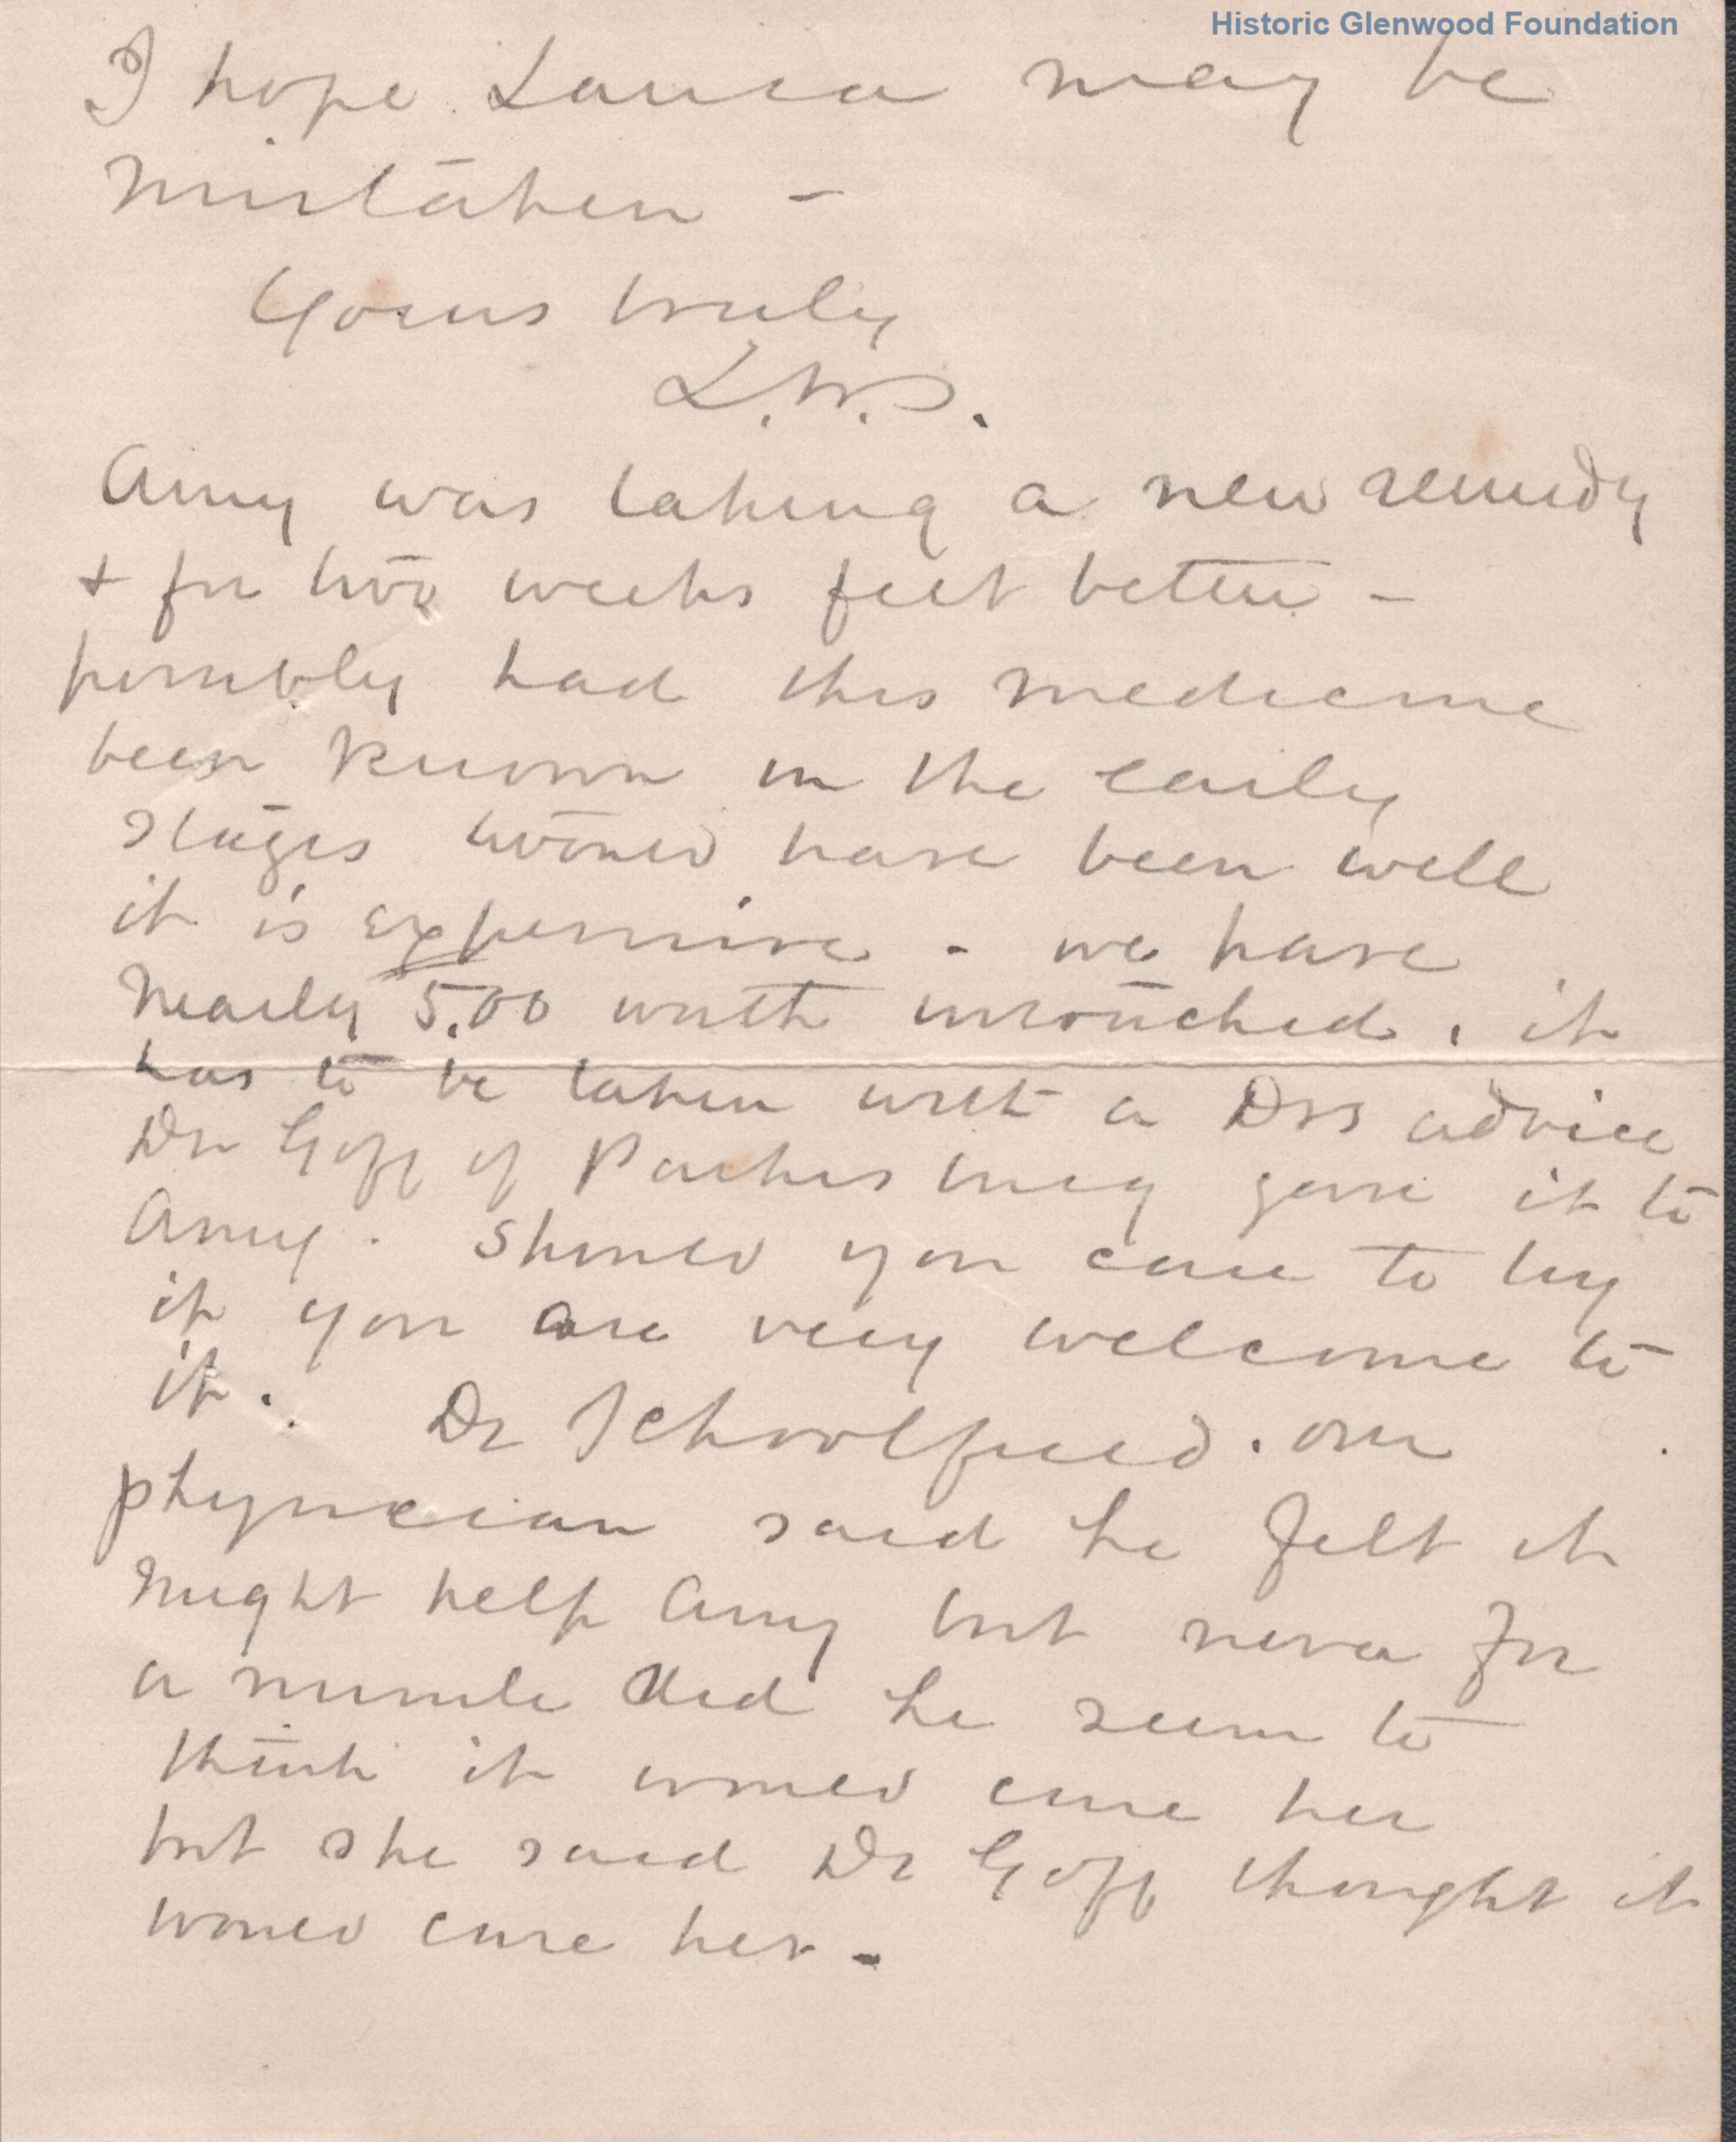 Historic Glenwood Foundation
I hope Laura may be
mistaken -
Yours truly
L.W.S.
Amy was taking a new remedy
+ for two weeks felt better -
possibly had this medicine
been known in the early
stages would have been well
it is expensive - we have
nearly 5.00 worth untouched, it
has to be taken with a Drs advice
Dr Goff of Parkersburg gave it to
Amy. Should you care to try
it you are very welcome to
it. Dr Schoolfield. our
physician said he felt it
might help Amy but never for
a minute did he seem to
think it would cure her
but she said Dr Goff thought it
would cure her -